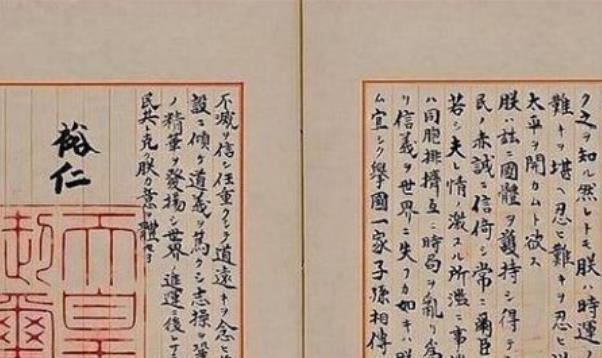 ク之ヲ知ル然レトモ朕ハ時運ノ
難キヲ堪ヘ忍ヒ難キヲ忍ヒ
太平ヲ開カムト欲ス
朕ハ茲ニ國體ヲ護持シ得テ
民ノ赤誠ニ信倚シ常ニ爾臣
若シ夫レ情ノ激スル所濫ニ事
ハ同胞排擠互ニ時局ヲ亂リ為
リ信義ヲ世界ニ失フカ如キハ朕
ム宜シク擧國一家子孫相傳
不滅ヲ信シ任重クシテ道遠キヲ念ヒ
設ニ傾ケ道義ヲ篤クシ志操ヲ鞏
ノ精華ヲ發揚シ世界ノ進運ニ後レ
民其レ克ク朕カ意ヲ體セヨ
裕仁
天皇
御璽